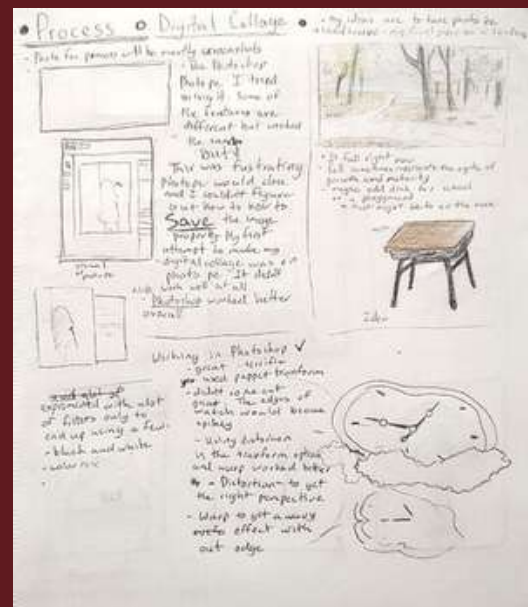 • Process • Digital Collage
• my ideas are to have photo be
• Photo for process will be mostly screenshots
the Photoshop
Photope. I tried
using it some of
the features are
different but worked
the same
BUT!
This was fustrating
Photope would close
and I couldnt figure
out how to
Save the image
properly My first
attempt to make my
digital collage was on
photope. It didnt
work well at all
Photoshop worked better
overall
• Its fall right now
fall sometimes represents the cycle of
growth and maturity
maybe add desk for school
or a playground
Idea
Working in Photoshop ✓
- great terrific
used puppet transform
- didnt come out
great. The edges of
watch would become
spikey
- Using distortion
in the transform option
and warp worked better
- Distortion to get
the right perspective
- Warp to get a wavy
effect with
out edge
experimented with alot
of filters only to
end up using a few.
- black and white
- color mix